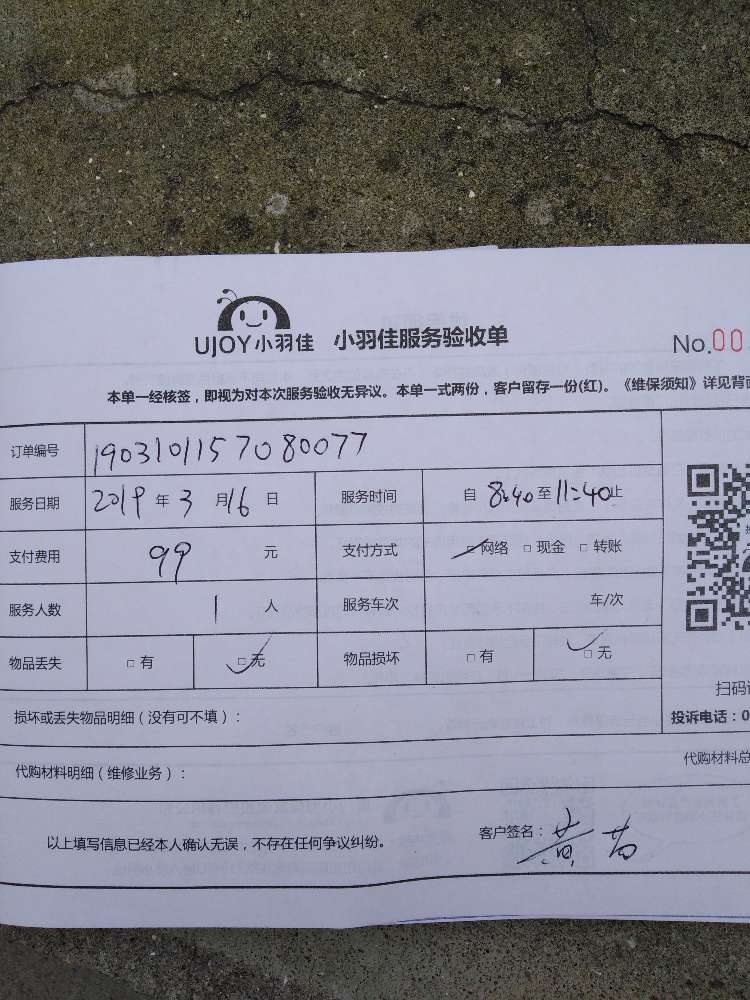 UJOY小羽佳 小羽佳服务验收单 No.00
本单一经核签，即视为对本次服务验收无异议。本单一式两份，客户留存一份(红)。《维保须知》详见背面
订单编号 1903101157080077
服务日期 2019 年 3 月 16 日 服务时间 自 8:40 至 11:40 止
支付费用 99 元 支付方式 □网络 □现金 □转账
服务人数 1 人 服务车次 车/次
物品丢失 □有 □无 物品损坏 □有 □无
扫码
损坏或丢失物品明细（没有可不填）： 投诉电话：0
代购材料明细（维修业务）： 代购材料总
以上填写信息已经本人确认无误，不存在任何争议纠纷。 客户签名：黄